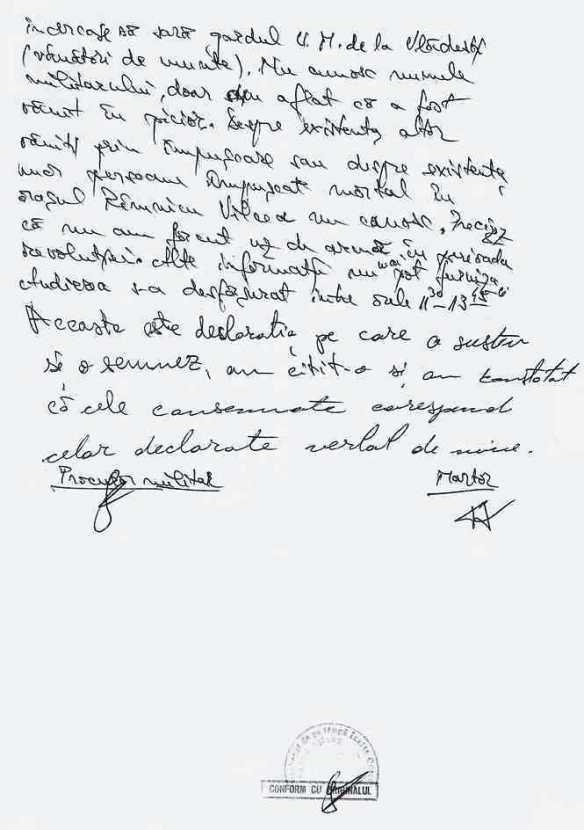 încercase să sară gardul U.M. de la Vlădești
(vânători de munte). Nu cunosc numele
militarului, doar am aflat că a fost
rănit în picior. Despre existența altor
răniți prin împușcare sau despre existența
unor persoane împușcate mortal în
orașul Râmnicu Vîlcea nu cunosc. Precizez
că nu am făcut uz de armă în perioada
revoluției. Alte informații nu mai pot furniza
audierea s-a desfășurat între orele 11³⁰-13
Aceasta este declarația pe care o susțin
și o semnez, am citit-o și am constatat
că cele consemnate corespund
celor declarate verbal de mine.
Procuror militar Martor
CONFORM CU ORIGINALUL